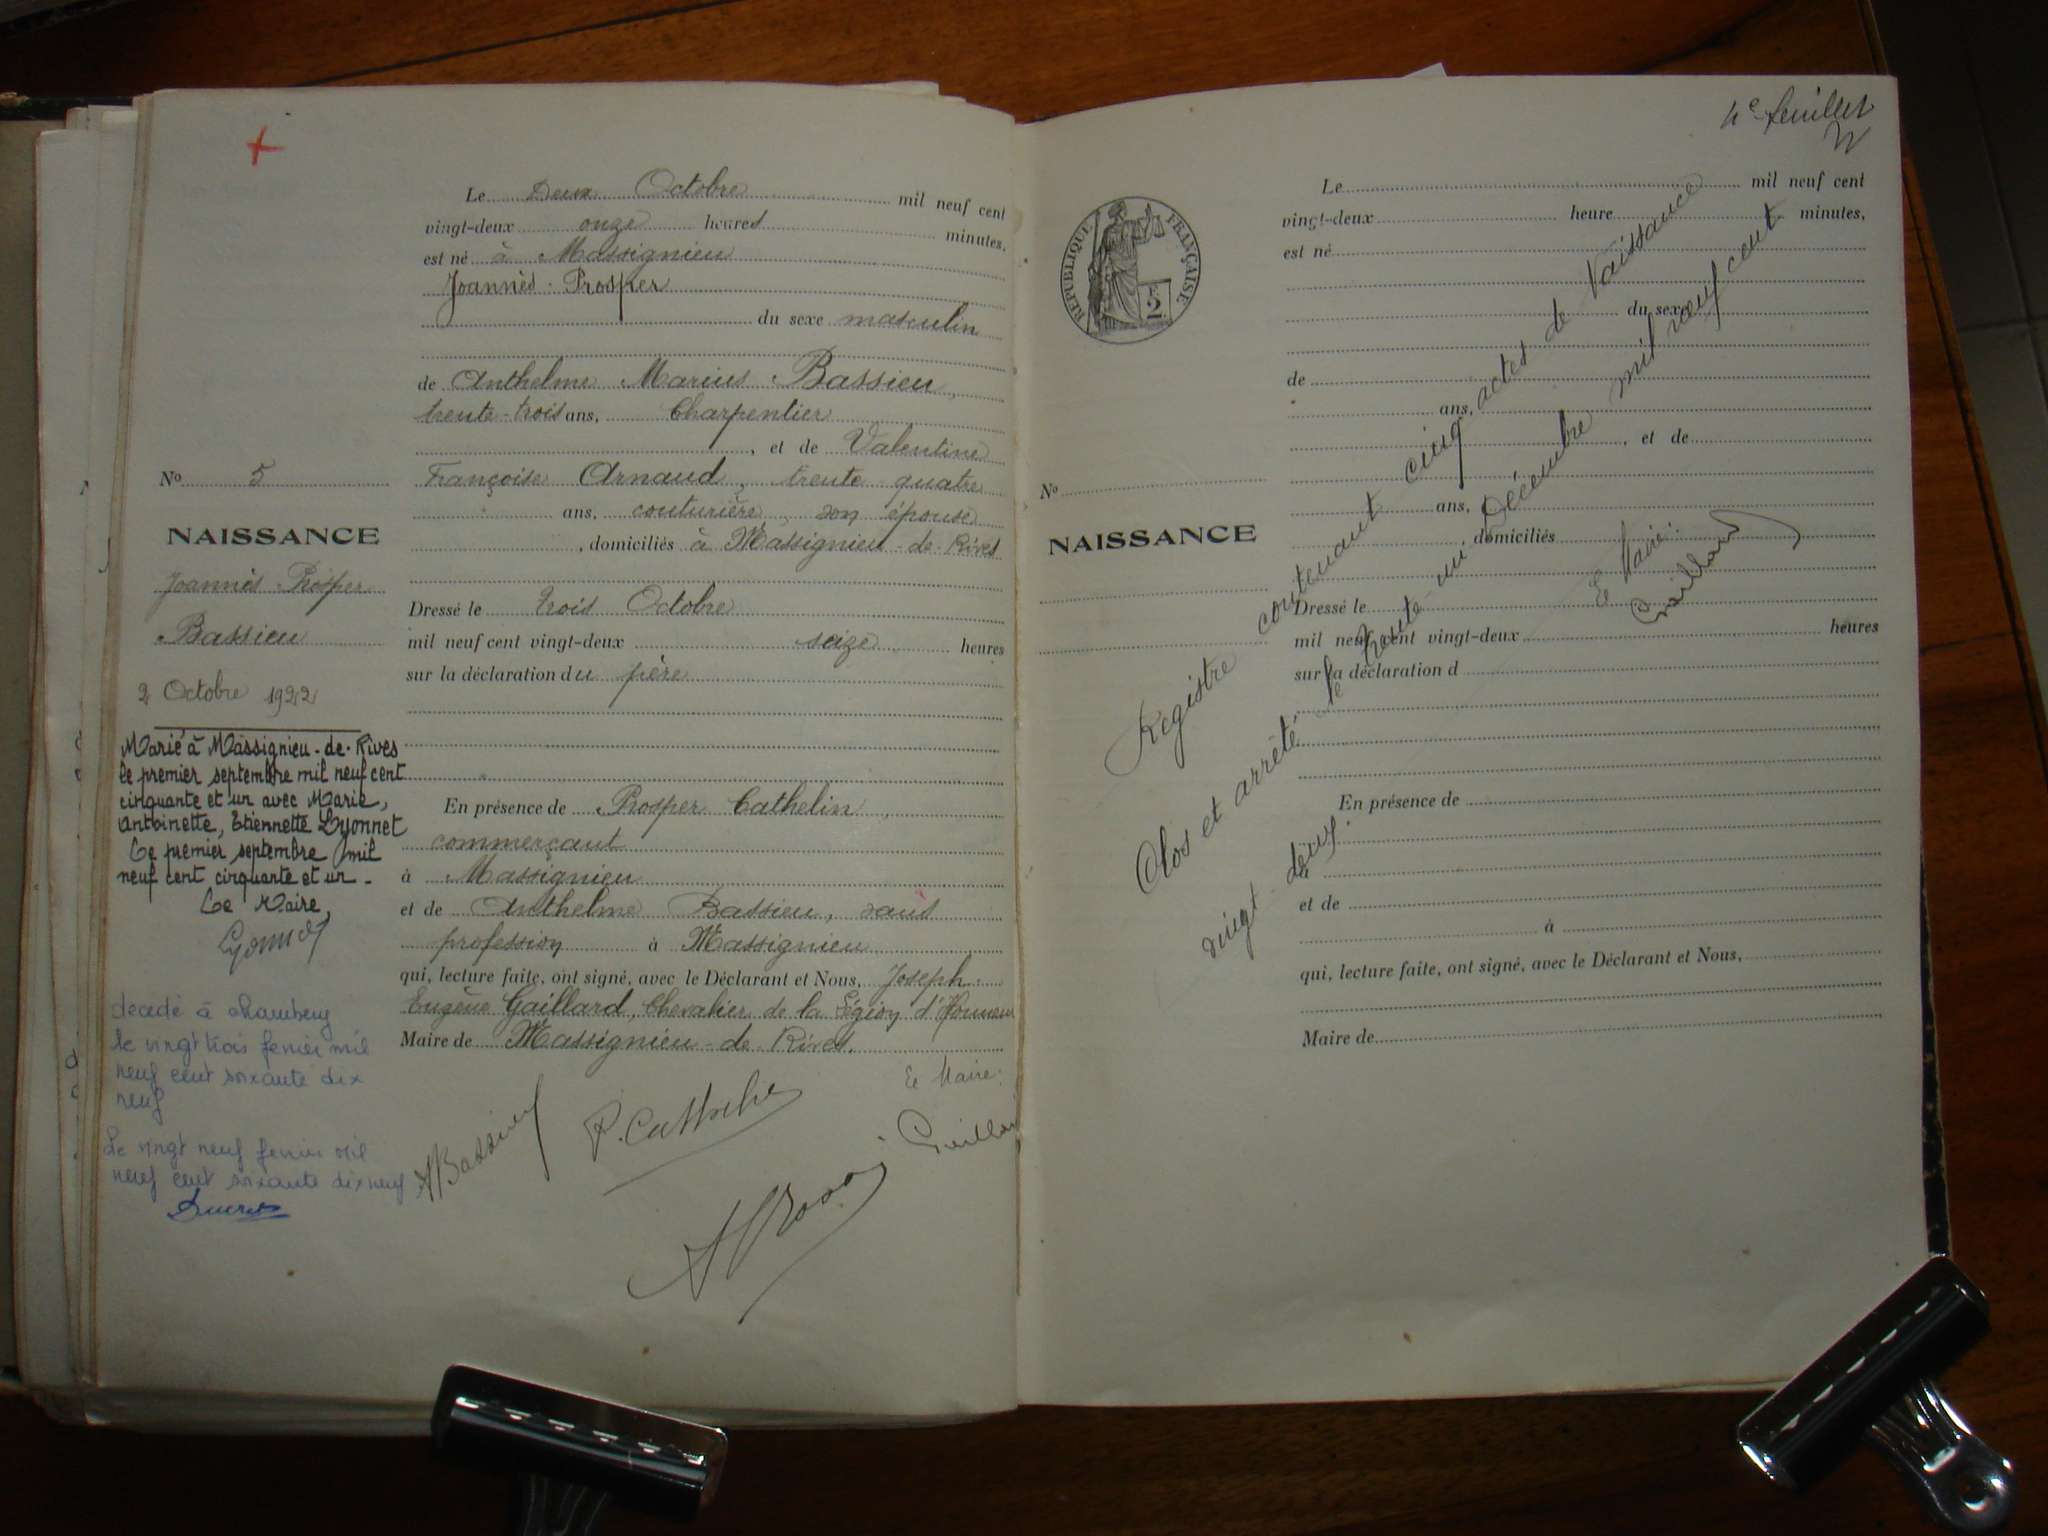 Le Deux Octobre mil neuf cent
vingt-deux onze heures minutes,
est né à Massignieu
Joannès Prosper
du sexe masculin
de Anthelme Marius Bassieu,
trente-trois ans, Charpentier
, et de Valentine
Françoise Arnaud, trente quatre
ans, couturière, son épouse
, domiciliés à Massignieu-de-Rives
Dressé le trois Octobre
mil neuf cent vingt-deux seize heures
sur la déclaration du père
En présence de Prosper Cathelin,
commerçant
à Massignieu
et de Anthelme Bassieu, sans
profession à Massignieu
qui, lecture faite, ont signé, avec le Déclarant et Nous, Joseph
Eugène Gaillard, Chevalier de la Légion d'Honneur
Maire de Massignieu-de-Rives.
Le Maire:
ABassieu P. Cathelin Gaillard
No 5
NAISSANCE
Joannès Prosper
Bassieu
2 Octobre 1922
Marié à Massignieu-de-Rives
le premier septembre mil neuf cent
cinquante et un avec Marie,
Antoinette, Etiennette Lyonnet
Le premier septembre mil
neuf cent cinquante et un -
Le Maire,
Lyonnet
décédé à chambery
le vingt trois fevrier mil
neuf cent soixante dix
neuf
Le vingt neuf fevrier mil
neuf cent soixante dix neuf
Ducret
4e feuillet
RÉPUBLIQUE FRANÇAISE
F
2
No
NAISSANCE
Le mil neuf cent
vingt-deux heure minutes,
est né
du sexe
de
ans,
, et de
ans,
, domiciliés
Dressé le
mil neuf cent vingt-deux heures
sur la déclaration d
En présence de
à
et de
à
qui, lecture faite, ont signé, avec le Déclarant et Nous,
Maire de
Registre contenant cinq actes de Naissance
Clos et arrêté le trente-un Décembre mil neuf cent
vingt-deux.
Le Maire:
Gaillard